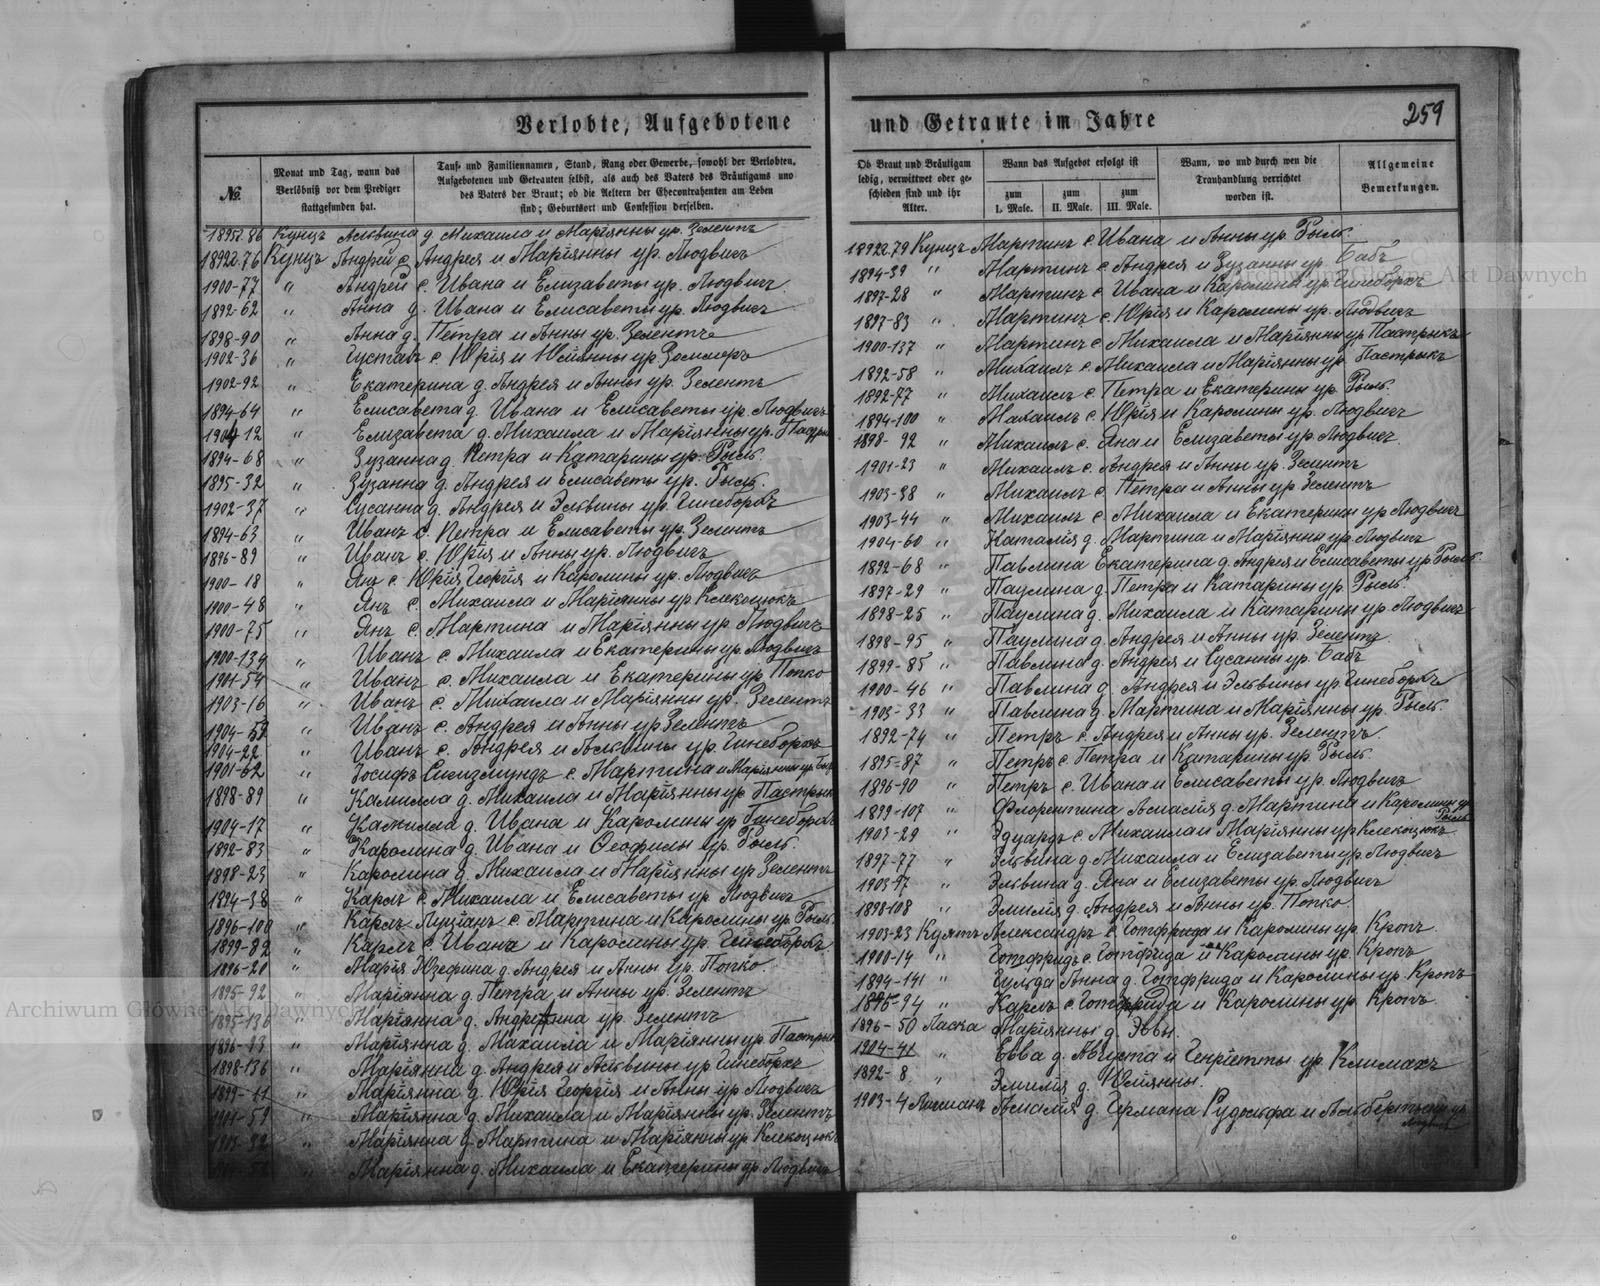 Verlobte, Aufgebotene
№
Monat und Tag, wann das
Verlöbniß vor dem Prediger
stattgefunden hat.
Tauf- und Familiennamen, Stand, Rang oder Gewerbe, sowohl der Verlobten,
Aufgebotenen und Getrauten selbst, als auch des Vaters des Bräutigams und
des Vaters der Braut; ob die Aeltern der Ehecontrahenten am Leben
sind; Geburtsort und Confession derselben.
Кунцъ Альвина д Михаила и Маріянны ур. Зелентъ
1892г.76 Кунцъ Андрей с. Андрея и Маріянны ур. Людвигъ
1900-77 " Андрей с. Ивана и Елизаветы ур. Людвигъ
1892-62 " Анна д. Ивана и Елисаветы ур. Людвигъ
1898-90 " Анна д. Петра и Анны ур. Зелентъ
1902-36 " Густавъ с. Юрія и Юліянны ур.
1902-92 " Екатерина д. Андрея и Анны ур. Зелентъ
1894-64 " Елисавета д. Ивана и Елисаветы ур. Людвигъ
1904-12 " Елизавета д. Михаила и Маріянны ур.
1894-68 " Зузанна д. Петра и Катарины ур. Рыль.
1895-32 " Зузанна д. Андрея и Елисаветы ур. Рыль.
1902-37 " Сусанна д. Андрея и Эльвины ур. Гинеборхъ
1894-63 " Иванъ с. Петра и Елисаветы ур. Зелентъ
1896-89 " Иванъ с. Юрія и Анны ур. Людвигъ
1900-18 " Янъ с. Юрія Георгія и Каролины ур. Людвигъ
1900-48 " Янъ с. Михаила и Маріянны ур. Клекоцюкъ
1900-75 " Янъ с. Мартина и Маріянны ур. Людвигъ
1900-139 " Иванъ с. Михаила и Екатерины ур. Людвигъ
1901-54 " Иванъ с. Михаила и Екатерины ур. Попко
1903-16 " Иванъ с. Михаила и Маріянны ур. Зелентъ
1904- " Иванъ с. Андрея и Анны ур Зелентъ
1904-22 " Иванъ с. Андрея и Альвины ур Гинеборхъ
1901-62 " Іосифъ Сигизмундъ с. Мартина и Маріянны ур.
1898-89 " Камилла д. Михаила и Маріянны ур Пастрык
1904-17 " Камилла д. Ивана и Каролины ур Гинеборхъ
1892-83 " Каролина д. Ивана и Теофилы ур. Рыль.
1898-23 " Каролина д. Михаила и Маріянны ур Зелентъ
1894-38 " Карлъ с. Михаила и Елисаветы ур. Людвигъ
1896-100 " Карлъ Луціанъ с. Мартина и Каролины ур. Рыль
1899-82 " Карлъ с. Ивана и Каролины ур. Гинеборхъ
1896-20 " Марія Юзефина д. Андрея и Анны ур. Попко.
1895-92 " Маріанна д. Петра и Анны ур. Зелентъ
1895-136 " Маріянна д. ур. Зелентъ
" Маріянна д. Михаила и Маріянны ур. Пастрык
1898-136 " Маріянна д. Андрея и Альвины ур. Гинеборхъ
1899-11 " Маріянна д. Юрія Георгія и Анны ур Людвигъ
" Маріянна д. Михаила и Маріянны ур. Зелентъ
" Маріянна д. Мартина и Маріянны ур Клекоцюкъ
" Маріянна д. Михаила и Екатерины ур. Людвигъ
und Getraute im Jahre 259
Ob Braut und Bräutigam
ledig, verwittwet oder ge-
schieden sind und ihr
Alter.
Wann das Aufgebot erfolgt ist
zum
I. Male.
zum
II. Male.
zum
III. Male.
Wann, wo und durch wen die
Trauhandlung verrichtet
worden ist.
Allgemeine
Bemerkungen.
1892г.79 Кунцъ Мартинъ с. Ивана и Анны ур. Рыль.
1894-39 " Мартинъ с. Андрея и Зузанны ур. Бабъ
1897-28 " Мартинъ с. Ивана и Каролины ур. Гинеборхъ
1897-83 " Мартинъ с. Юрія и Каролины ур. Людвигъ
1900-137 " Мартинъ с. Михаила и Маріянны ур Пастрыкъ
1892-58 " Михаилъ с. Михаила и Маріянны ур. Пастрыкъ
1892-77 " Михаилъ с. Петра и Екатерины ур. Рыль.
1894-100 " Михаилъ с. Юрія и Каролины ур. Людвигъ
1898-92 " Михаилъ с. Яна и Елизаветы ур. Людвигъ.
1901-23 " Михаилъ с. Андрея и Анны ур. Зелентъ
1903-38 " Михаилъ с. Петра и Анны ур. Зелентъ
1903-44 " Михаилъ с. Михаила и Екатерины ур Людвигъ
1904-60 " Наталія д. Мартина и Маріянны ур. Людвигъ
1892-68 " Павлина Екатерина д. Андрея и Елисаветы ур Рыль.
1897-29 " Паулина д. Петра и Катарины ур. Рыль.
1898-25 " Паулина д. Михаила и Катарины ур. Людвигъ
1898-95 " Паулина д. Андрея и Анны ур. Зелентъ.
1899-85 " Павлина д. Андрея и Сусанны ур. Бабъ
1900-46 " Павлина д. Андрея и Эльвины ур. Гинеборхъ
1903-33 " Павлина д. Мартина и Маріянны ур. Рыль
1892-74 " Петръ с. Андрея и Анны ур. Зелентъ.
1895-87 " Петръ с. Петра и Катарины ур. Рыль.
1896-90 " Петръ с. Ивана и Елисаветы ур. Людвигъ
1899-107 " Флорентина Амалія д. Мартина и Каролины ур
Рыль
1903-29 " Эдуардъ с. Михаила и Маріянны ур Клекоцюкъ.
1897-77 " Эльвина д. Михаила и Елизаветы ур. Людвигъ
1903-97 " Эльвина д. Яна и Елизаветы ур. Людвигъ
1898-108 " Эмилія д. Андрея и Анны ур. Попко.
1903-23 Александръ с Готфрида и Каролины ур. Кропъ.
1900-14 " Готфридъ с. Готфрида и Каролины ур. Кропъ
1894-141 " Гульда Анна д. Готфрида и Каролины ур. Кропъ
1895-94 " Карлъ с. Готфрида и Каролины ур. Кропъ.
1896-50 Ласка Маріянны д. Эввы.
1904-41 " Евва д. Августа и Генріетты ур. Климахъ
1892-8 " Эмилія д. Юліянны.
1903-4 Амалія д. Германа Рудольфа и ур.
Людвигъ
Archiwum Główne Akt Dawnych
Archiwum Główne Akt Dawnych